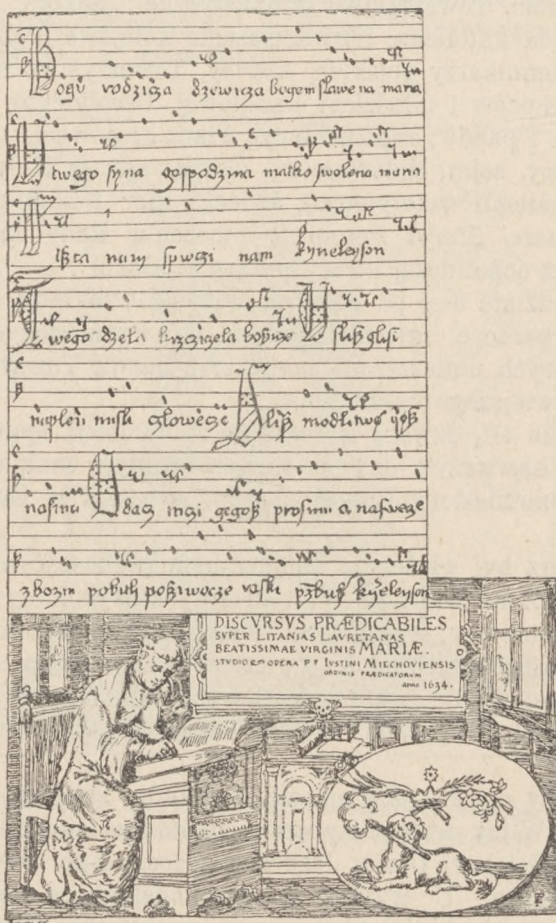 Bogu rodzicza dzewicza bogem slawena maria
U twego syna gospodzina matko swolena maria
nam spwczi nam kyrieleyson
Twego dzela krzcziczela bozicze Uslis glosi
misli czlowecze Slis modlitwo
nasimi Odacz raczi gegosz prosimi a naswecze
zbozni pobith posziwocze raski kyrieleyson
DISCVRSVS PRÆDICABILES
SVPER LITANIAS LAVRETANAS
BEATISSIMAE VIRGINIS MARIÆ.
STVDIO ET OPERA P F IVSTINI MIECHOVIENSIS
ORDINIS PRÆDICATORUM
anno 1634.